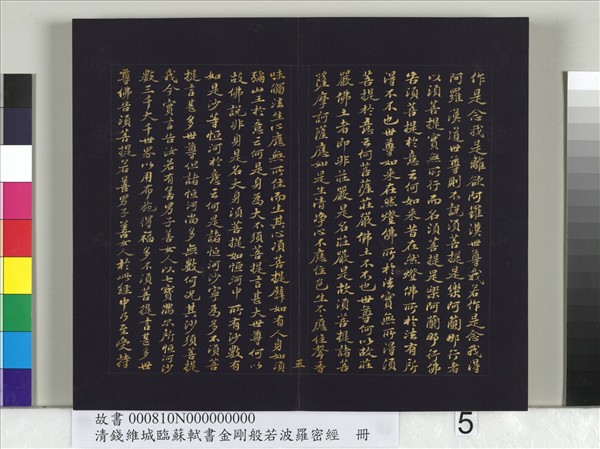 作是念我是離欲阿羅漢世尊我若作是念我得
阿羅漢道世尊則不說須菩提是樂阿蘭那行者
以須菩提實無所行而名須菩提是樂阿蘭那行佛
告須菩提於意云何如來昔在然燈佛所於法有所
得不不也世尊如來在然燈佛所於法實無所得須
菩提於意云何菩薩莊嚴佛土不不也世尊何以故莊
嚴佛土者即非莊嚴是名莊嚴是故須菩提諸菩
薩摩訶薩應如是生清淨心不應住色生心不應住聲香
五
味觸法生心應無所住而生其心須菩提譬如有人身如須
彌山王於意云何是身為大不須菩提言甚大世尊何以
故佛說非身是名大身須菩提如恒河中所有沙數有
如是沙等恒河於意云何是諸恒河沙寧為多不須菩
提言甚多世尊但諸恒河尚多無數何況其沙須菩提
我今實言告汝若有善男子善女人以七寶滿爾所恒河沙
數三千大千世界以用布施得福多不須菩提言甚多世
尊佛告須菩提若善男子善女人於此經中乃至受持
5
故書 000810N000000000
清錢維城臨蘇軾書金剛般若波羅密經 冊